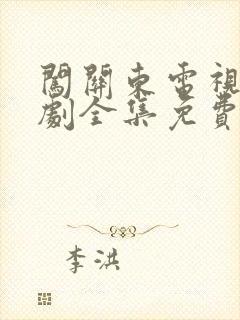 闖關東電視
劇全集免費
李洪